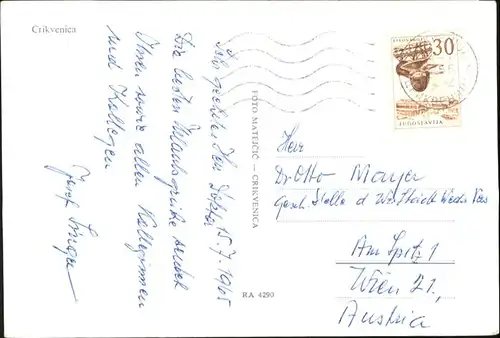 Crikvenica
Sehr geehrter Herr Doktor 15.7.1965
Die besten Urlaubsgrüße sendet
Ihnen sowie allen Kolleginnen
und Kollegen
Josef
FOTO MATEJČIĆ — CRIKVENICA
RA 4290
JUGOSLAVIJA
30
JUGOSLAVIJA
Herr
Dr Otto Mayer
Gesch. Stelle d
Am Spitz 1
Wien 21,
Austria